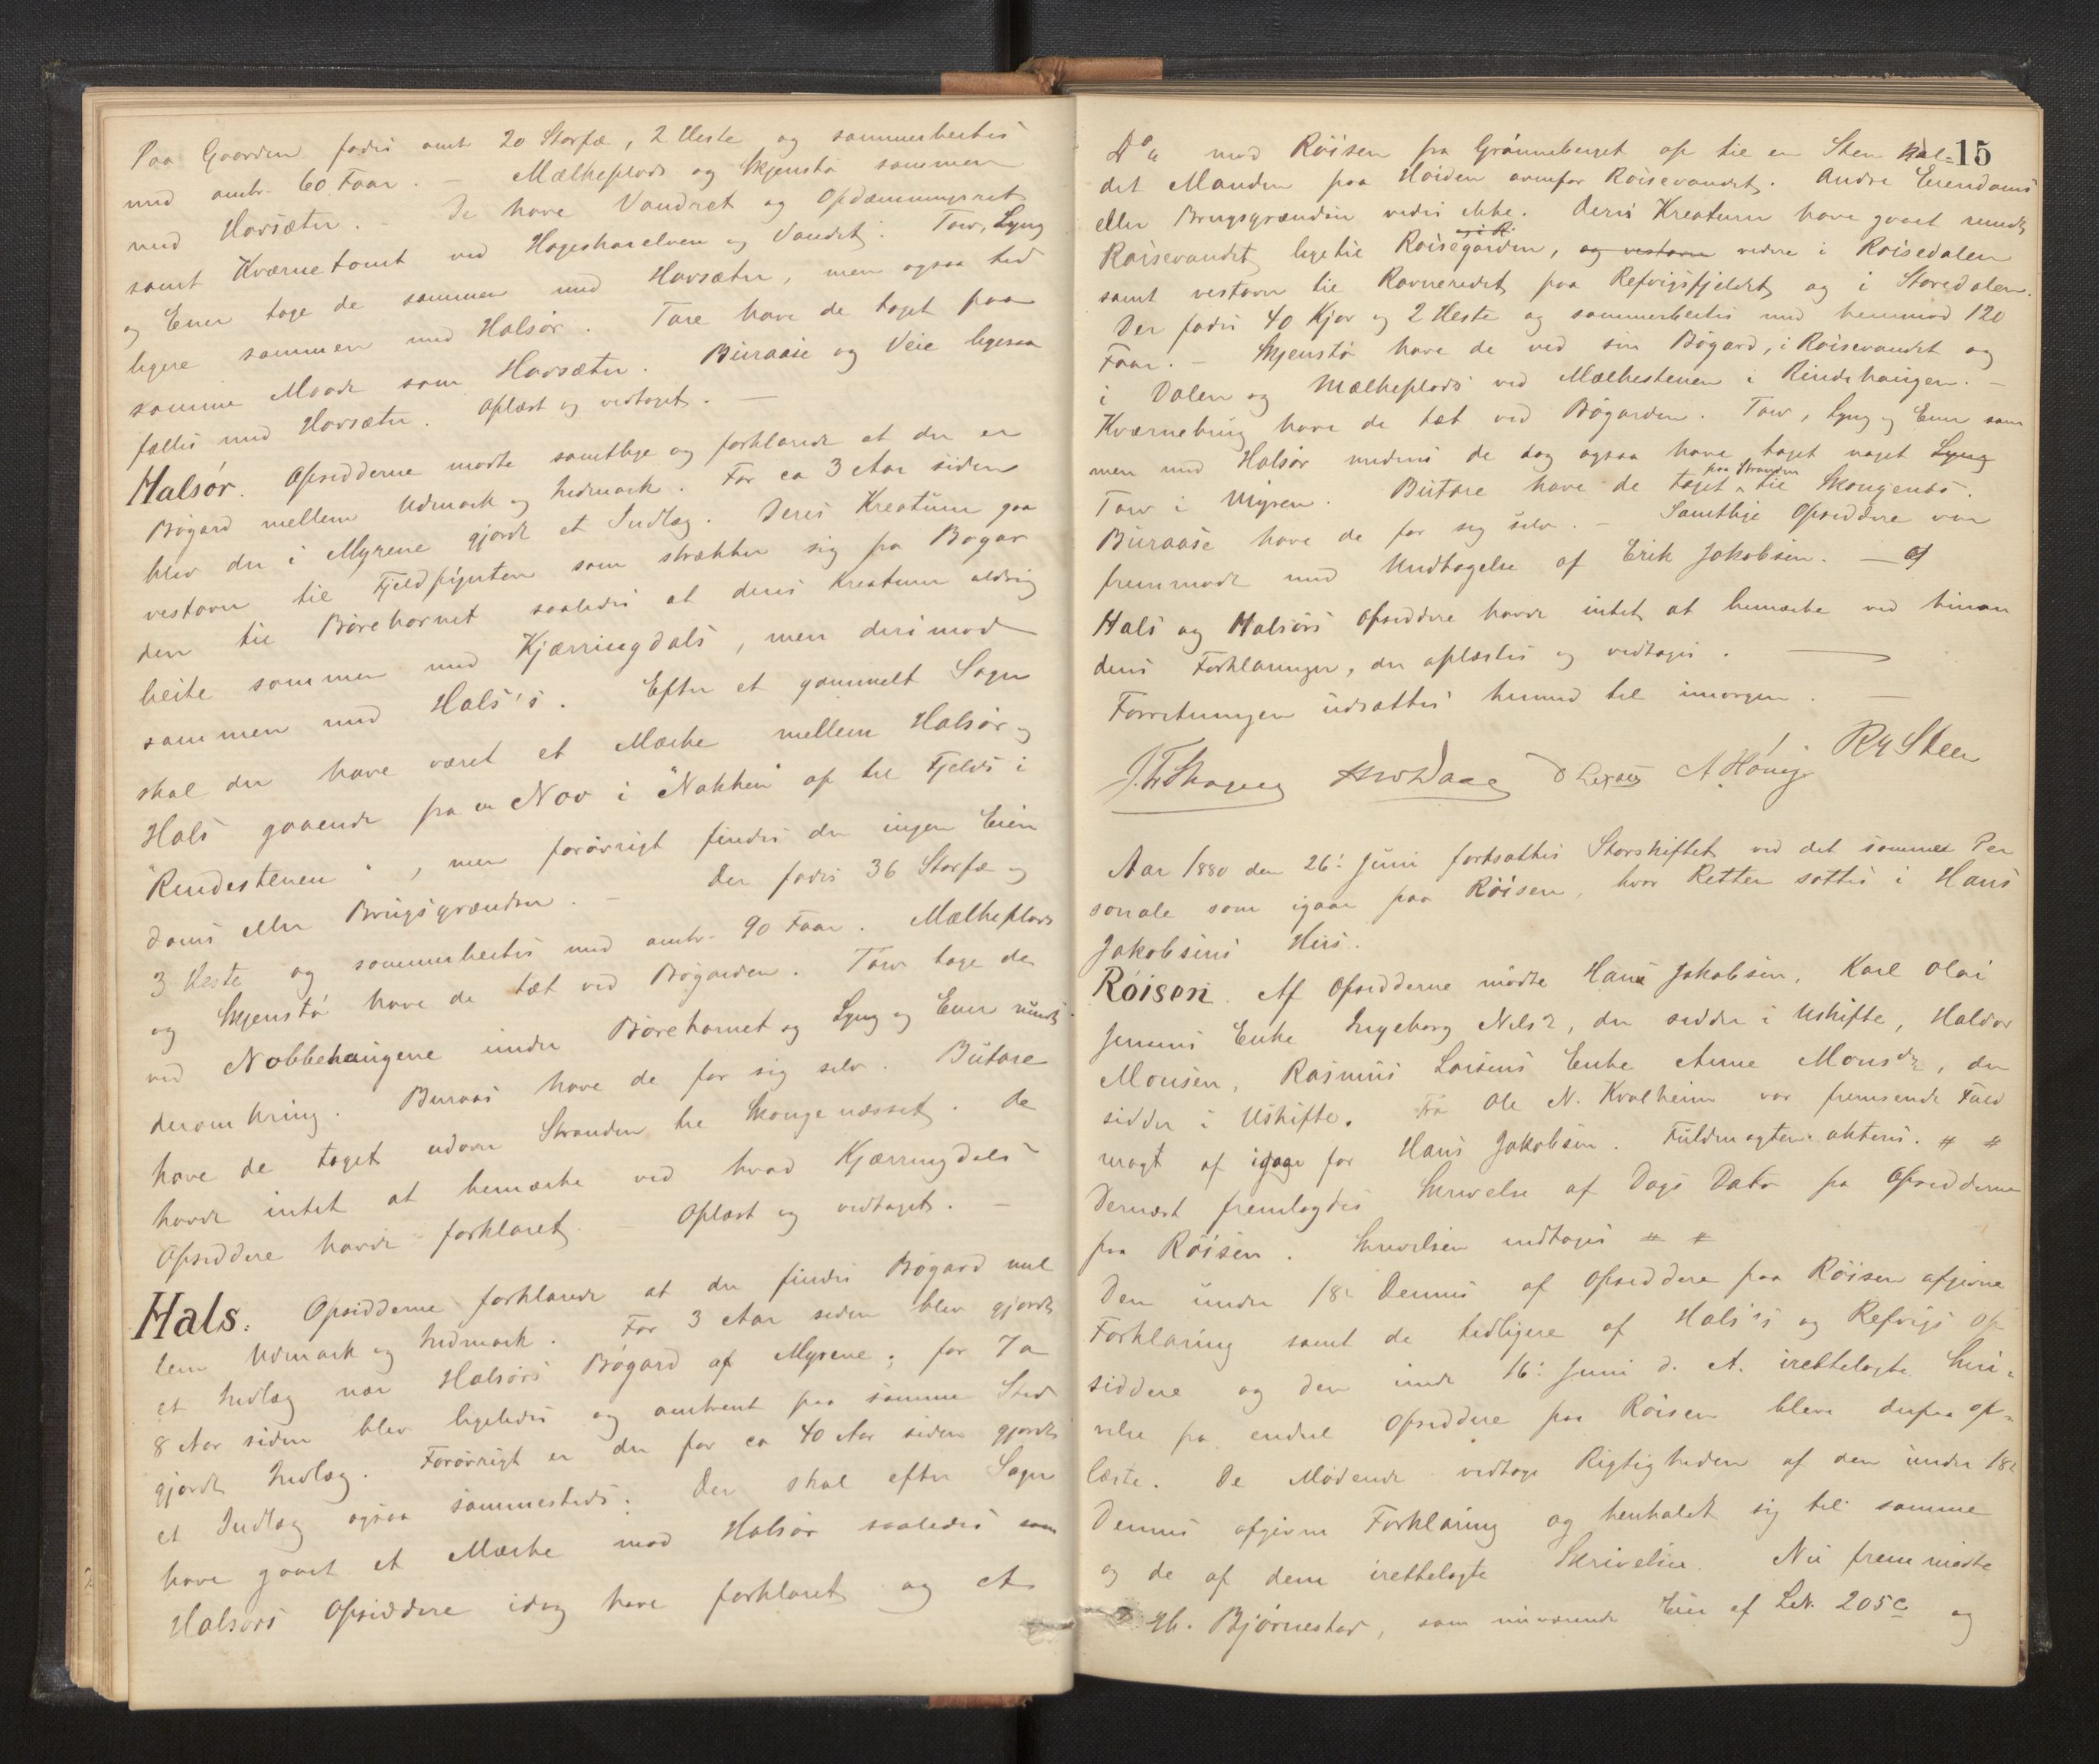 Paa Gaarden fødes omt 20 Storfæ, 2 Heste og sommerbeites
med omtr. 60 Faar. – Mælkeplads og Skjenstø sammen
med Havsæter. – De have Vandret og Opdæmningsret
samt Kværnetomt ved Hageskarelven og Vandet. Torv, Lyng
og Ener tage de sammen med Havsæter, men ogsaa tid
ligere sammen med Halsør. Tare have de taget paa
samme Maade som Havsæter. Buraase og Veie ligesaa
fælles med Havsæter. Oplæst og vedtaget. –
Halsør. Opsidderne mødte samtlige og forklarede at der er
Bøgard mellem Udmark og Indmark. For ca 3 Aar siden
blev der i Myrene gjordt et Indlæg. Deres Kreaturer gaa
vestover til Fjeldpynten som strækker sig fra Bøgar
den til Børehornet saaledes at deres Kreaturer aldrig
beite sammen med Kjærringdals, men derimod
sammen med Hals's. Efter et gammelt Sagn
skal der have været et Mærke mellem Halsør og
Hals gaaende fra en Nov i "Nakken" op til Fjelds i
"Rendestenen", men forøvrigt findes der ingen Eien
doms eller Brugsgrændser. – Der fødes 36 Storfæ og
3 Heste og sommerbeites med omtr. 90 Faar. Mælkeplads
og Skjenstø have de tæt ved Bøgarden. Torv tage de
ved Nobbehaugene under Børehornet og Lyng og Ener rundt
deromkring. Buraas have de for sig selv. Butare
have de taget udover Stranden til Skongenæsset. De
havde intet at bemærke ved hvad Kjærringdals
Opsiddere havde forklaret. – Oplæst og vedtaget. –
Hals. Opsidderne forklarede at der findes Bøgard mel
lem Udmark og Indmark. For 3 Aar siden blev gjordt
et Indlæg nær Halsørs Bøgard af Myrene; for 7 a
8 Aar siden blev ligeledes og omtrent paa samme Sted
gjordt Indlæg. Forøvrigt er der for ca 40 Aar siden gjordt
et Indlæg ogsaa sammesteds. Der skal efter Sagn
have gaaet et Mærke mod Halsør saaledes som
Halsørs Opsiddere idag have forklaret og et
15
Do mod Røisen fra Grønneberget op til en Sten kal=
det Manden paa Høiden ovenfor Røisevandet. Andre Eiendoms
eller Brugsgrændser vides ikke. Deres Kreaturer have gaaet rundt
Røisevandet lige til Røisegarden, og vestover videre i Røisedalen
samt vestover til Ravneredet paa Refvigsfjeldet og i Storedalen.
Der fødes 40 Kjør og 2 Heste og sommerbeites med henimod 120
Faar. – Skjenstø have de ved sin Bøgard, i Røisevandet og
i Dalen og Mælkeplads ved Mælkestenen i Rindehaugen. –
Kværnebrug have de tæt ved Bøgarden. Torv, Lyng og Ener sam
men med Halsør medens de dog ogsaa have taget noget Lyng
Torv i Myren. Butare have de taget paa Stranden til Skongenæs.
Buraase have de for sig selv. – Samtlige Opsiddere var
fremmødt med Undtagelse af Erik Jakobsen. – Of
Hals og Halsørs Opsiddere havde intet at bemærke ved hinan
dens Forklaringer, der oplæstes og vedtages. –
Forretningen udsættes hermed til imorgen. –
R Y Steen
Aar 1880 den 26: Juni fortsattes Storskiftet ved det samme Per
sonale som igaar paa Røisen, hvor Retten sattes i Hans
Jakobsens Hus.
Røisen. Af Opsidderne mødte Hans Jakobsen, Karl Olai
Jensens Enke Ingeborg Nilsd, der sidder i Uskifte, Haldor
Monsen, Rasmus Larsens Enke Anne Monsdr, der
sidder i Uskifte. Fra Ole N. Kvalheim var fremsendt Fuld
magt af igaar for Hans Jakobsen. Fuldmagten akteres. # #
Dernæst fremlagdes Skrivelse af Dags Dato fra Opsidderne
paa Røisen. Skrivelsen indtages # #
Den under 18de Dennes af Opsiddere paa Røisen afgivne
Forklaring samt de tidligere af Hals's og Refvigs Op
siddere og den under 16: Juni d. A. irettelagte Skri=
velse fra endel Opsiddere paa Røisen bleve derpaa op=
læste. De Mødende vedtoge Rigtigheden af den under 18de
Dennes afgivne Forklaring og henholdt sig til samme
og de af dem irettelagte Skrivelser. Nu fremmødte
Bjørnestad, som nuværende Eier af L.N. 205c og